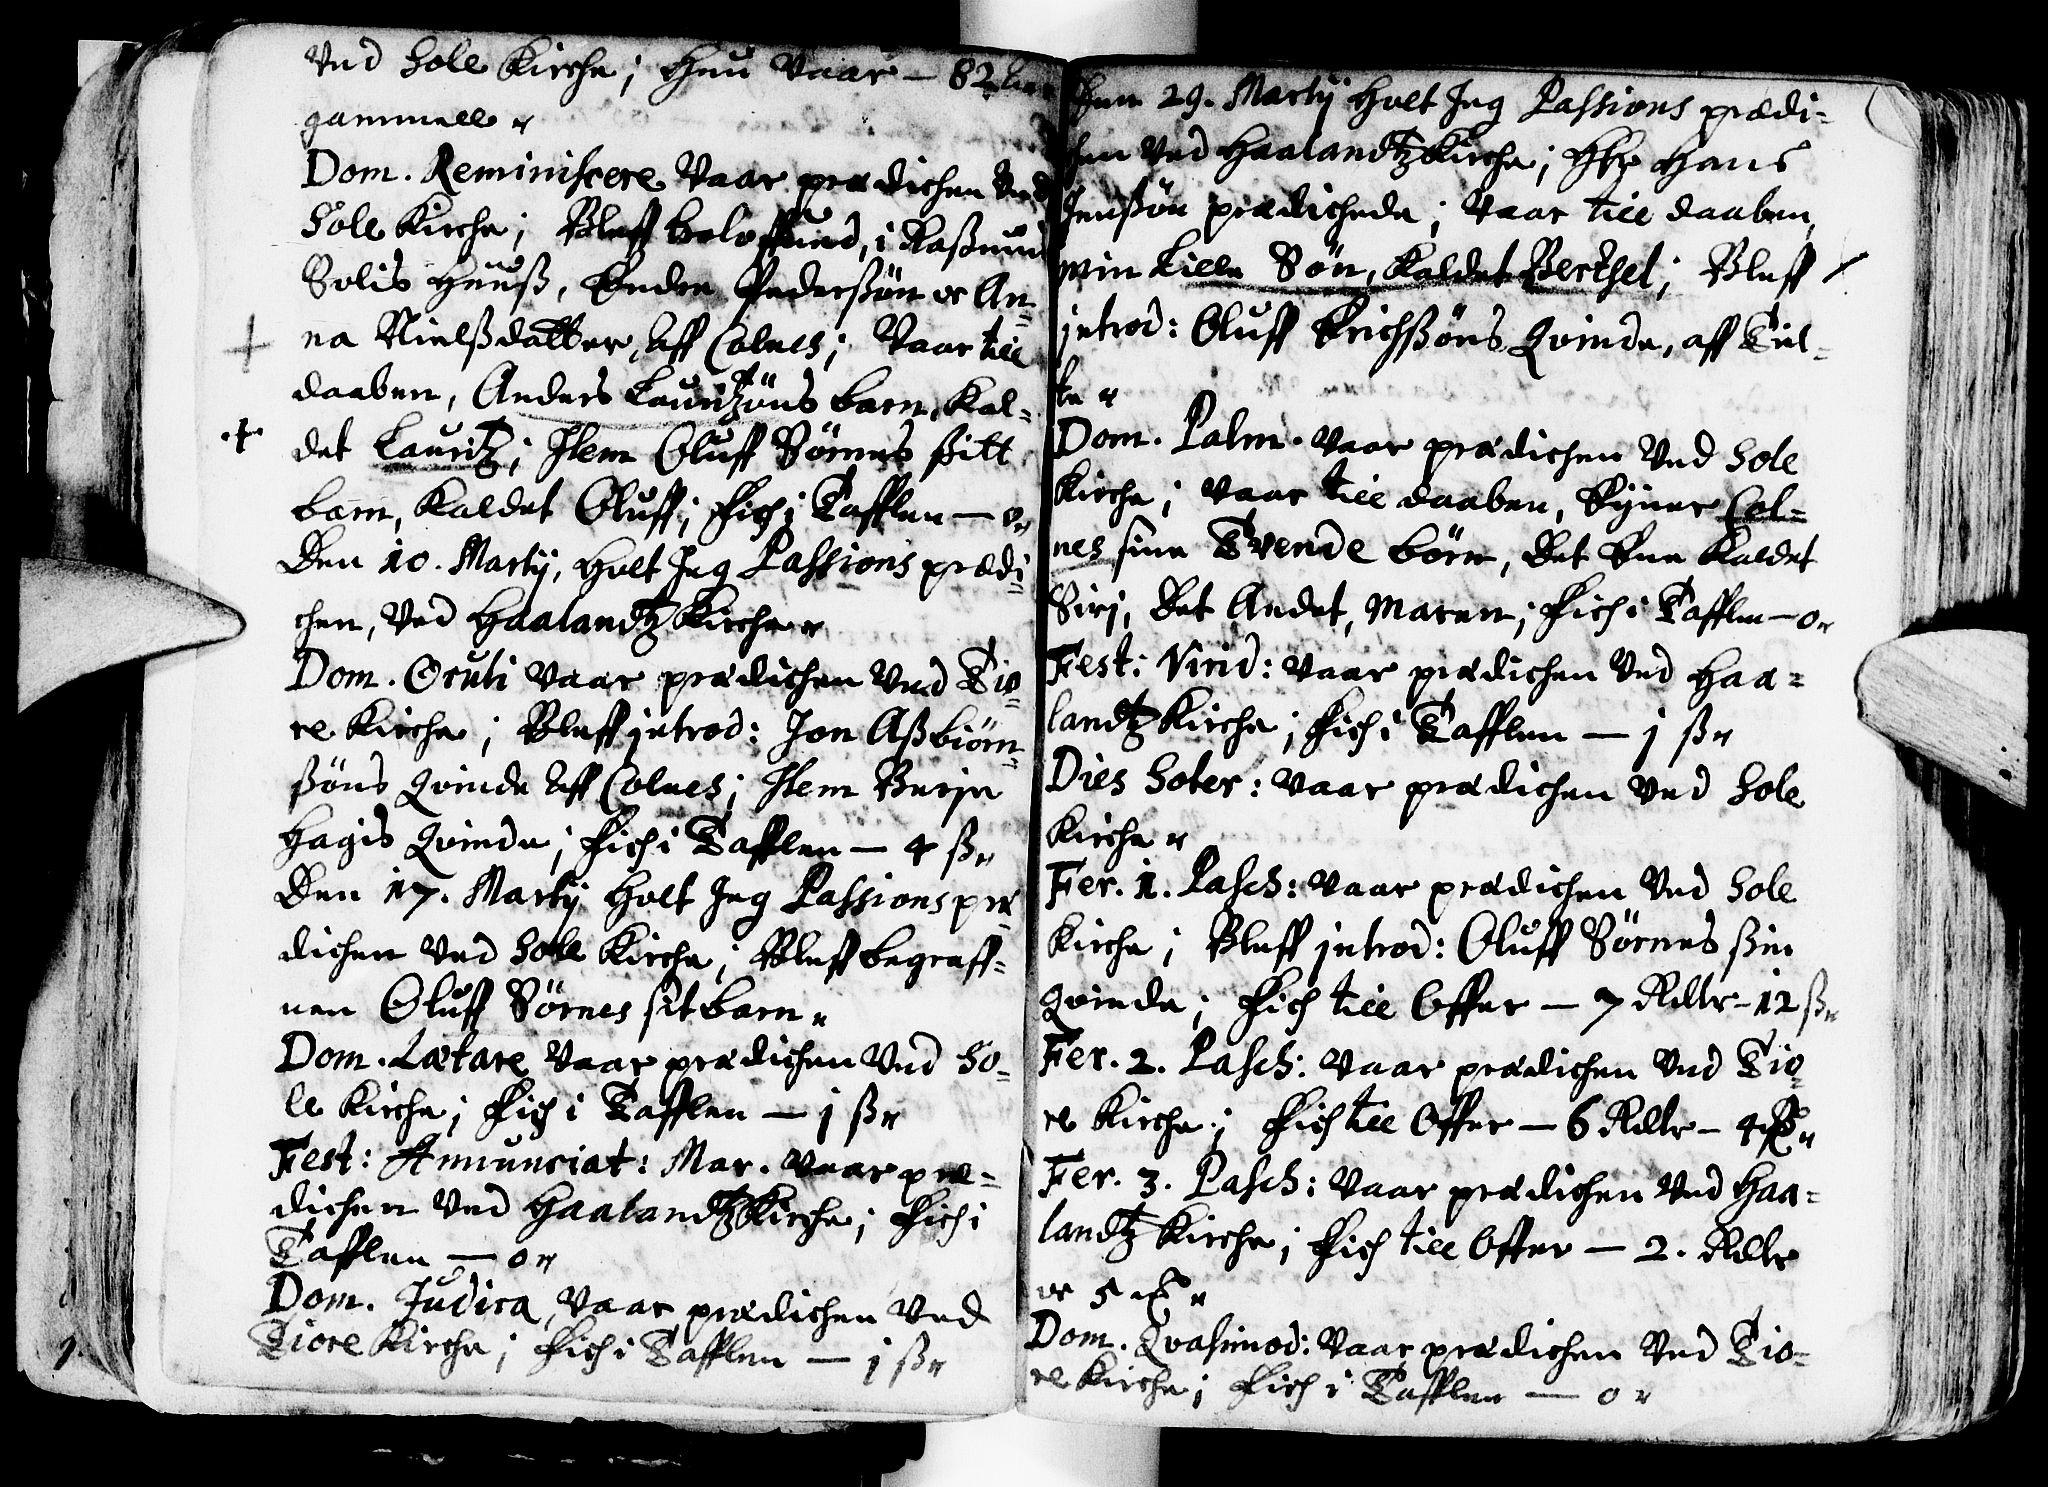 Ved Sole Kirche; Hun Vaar — 82 Aar
gammell
Dom. Reminiscere Vaar prædichen Ved
Sole Kirche; Bleff troloffued, i Raßmus
Solis Huuß, Endre Pederßøn oc An=
na Nielßdatter, Aff Colnes; Vaar till
daaben, Anders Lauritzøns barn, Kal=
det Lauritz; Item Oluff Sørnes sitt
barn, Kaldet Oluff; Fich i Tafflen — 0
Den 10. Martij, Holt Jeg Passions prædi=
chen, Ved Haalandtz Kirche
Dom. Oculi Vaar prædichen Ved Tio=
re Kirche; Bleff introd: Jon Aßbiørn=
ßøns Qvinde Aff Colnes; Item Berje
Hagis Qvinde; Fich i Tafflen — 4 ß
Den 17. Martij Holt Jeg Passions præ=
dichen Ved Sole Kirche; Bleff begraff=
uen Oluff Sørnes sit barn
Dom. Lætare Vaar prædichen Ved So=
le Kirche; Fich i Tafflen — j ß
Fest: Annunciat: Mar. Vaar præ=
dichen Ved Haalandtz Kirche; Fich i
Tafflen — 0
Dom. Judica, Vaar prædichen Ved
Tiore Kirche; Fich i Tafflen — j ß
Den 29. Martij Holt Jeg Passions prædi=
chen Ved Haalandtz Kirche; Hr Hans
Jenßøn prædichede; Vaar till daaben,
min Lille Søn, Kaldet Berthel; Bleff
introd: Oluff Erichßøns Qvinde, aff Tiel=
te
Dom. Palm. Vaar prædichen Ved Sole
Kirche; Vaar till daaben, Kyner Col=
nes sine Tvende børn, Det Ene Kaldet
Siri, Det Andet, Maren; Fich i Tafflen — 0
Fest: Virid: Vaar prædichen Ved Haa=
landtz Kirche; Fich i Tafflen — j ß
Dies Soter: Vaar prædichen Ved Sole
Kirche
Fer. 1. Pasch: Vaar prædichen Ved Sole
Kirche; Bleff introd: Oluff Sørnes sin
Qvinde; Fich till Offer — 7 Rdlr — 12 ß
Fer. 2. Pasch: Vaar prædichen Ved Tio=
re Kirche; Fich till Offer — 6 Rdlr — 4
Fer. 3. Pasch: Vaar prædichen Ved Haa=
landtz Kirche; Fich till Offer — 2. Rdlr
oc 5
Dom. Qvasimod: Vaar prædichen Ved Tio=
re Kirche; Fich i Tafflen — 0